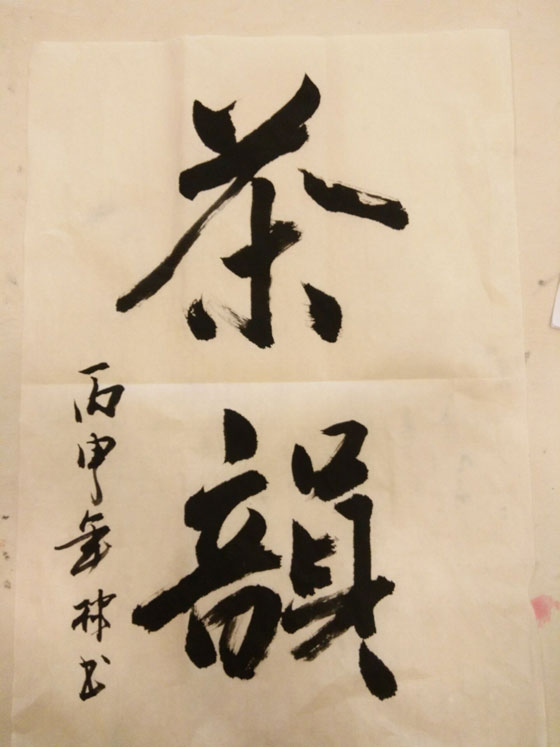 茶韻
丙申年书